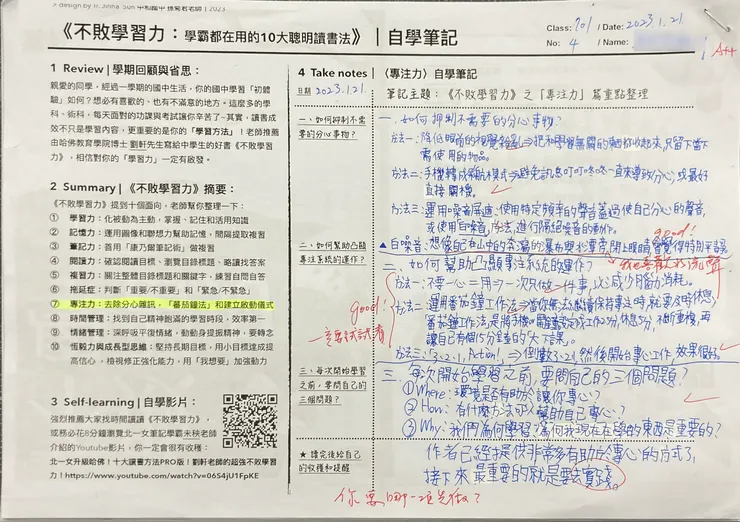 > design by Tr. Jinna Sun 中和國中 孫菊君老師 | 2023
《不敗學習力：學霸都在用的10大聰明讀書法》｜自學筆記
Class: 701 / Date: 2023.1.21
No: 4 / Name:
A++
1 Review | 學期回顧與省思：
親愛的同學，經過一學期的國中生活，你的國中學習「初體
驗」如何？想必有喜歡的、也有不滿意的地方。這麼多的學
科、術科，每天面對的功課與考試讓你辛苦了~其實，讀書成
效不只是學習內容，更重要的是你的「學習方法」！老師推薦
由哈佛教育學院博士劉軒先生寫給中學生的好書《不敗學習
力》，相信對你的「學習力」一定有啟發。
2 Summary | 《不敗學習力》摘要：
《不敗學習力》提到十個面向，老師幫你整理一下：
① 學習力：化被動為主動，掌握、記住和活用知識
② 記憶力：運用圖像和聯想力幫助記憶，間隔提取複習
③ 筆記力：善用「康乃爾筆記術」做複習
④ 閱讀力：確認閱讀目標、瀏覽目錄標題、略讀找答案
⑤ 複習力：關注整體目錄標題和關鍵字，練習自問自答
⑥ 拖延症：判斷「重要/不重要」和「緊急/不緊急」
⑦ 專注力：去除分心雜訊，「蕃茄鐘法」和建立啟動儀式
⑧ 時間管理：找到自己精神飽滿的學習時段，效率第一
⑨ 情緒管理：深呼吸平復情緒，動動身提振精神，要轉念
⑩ 恆毅力與成長型思維：堅持長期目標，用小目標達成提
高信心，檢視修正強化能力，用「我想要」加強動力
3 Self-learning | 自學影片：
強烈推薦大家找時間讀讀《不敗學習力》，
或務必花8分鐘瀏覽北一女筆記學霸未秧老師
介紹的Youtube影片，你一定會很有收穫：
北一女升級哈佛！十大讀書方法PRO版！劉軒老師的超強不敗學習
力！https://www.youtube.com/watch?v=06S4jU1FpKE
4 Take notes | 〈專注力〉自學筆記
日期 2023.1.21.
筆記主題：《不敗學習力》之「專注力」篇重點整理
一、如何抑制不需
要的分心事物？
一、如何抑制不需要的分心事物？
方法一：降低眼前的視覺雜亂⇒把和學習無關的東西都收起來，只留下當下
需使用的物品。
方法二：手機轉成飛航模式⇒避免訊息叮叮咚咚一直來導致分心，或最好
直接關機。
方法三：運用噪音屏遮，使用特定頻率的聲音蓋過使自己分心的聲音，
或使用「白噪音」方法，進行隔絕噪音的動作。
good!
▲白噪音：想像自己在山中的
我也喜歡水流聲
二、如何幫助凸顯
專注系統的運作？
二、如何幫助凸顯專注系統的運作？
方法一：不要一心二用⇒一次只做一件事，以減少腦力消耗。
方法二：運用番茄鐘工作法⇒當你無法繼續保持專注時，就要及時休息，
番茄鐘工作法是將手機
讓自己有個5分鐘的大下課。
good!
一定要試試看
方法三：「3.2.1，Action!」⇒倒數3.2.1然後開始專心工作，效果很好。
三、每次開始學習
之前，要問自己的
三個問題？
三、每次開始學習之前，要問自己的三個問題？
①Where：環境是否有助於讓你專心？
②How：有什麼方法可以幫助自己專心？
③Why：我們為何學習？為何我現在在學的東西是重要的？
★ 讀完後給自己
的收穫和提醒
作者已經提供非常多有助於專心的方式了，
接下來最重要的就是要去實踐。
你要哪一項先做？